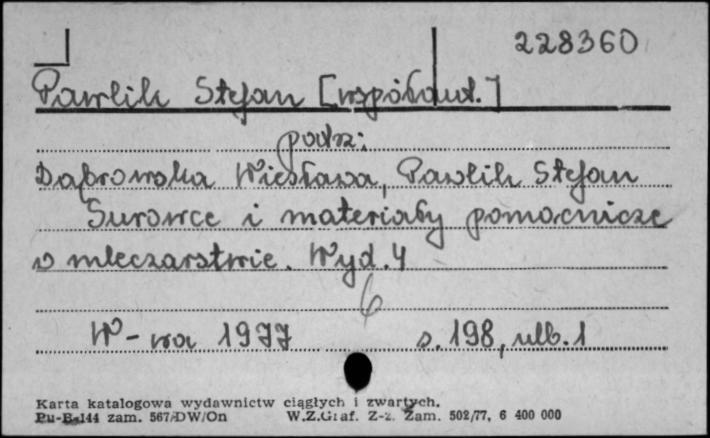 228360
Pawlik Stefan [współaut.]
patrz:
Dąbrowska Wiesława, Pawlik Stefan
Surowce i materiały pomocnicze
w mleczarstwie. Wyd. 4
6
W-wa 1977 s. 198, nlb. 1
Karta katalogowa wydawnictw ciągłych i zwartych.
Pu-B-144 zam. 567/DW/On W.Z.Graf. Z-z. Zam. 502/77, 6 400 000